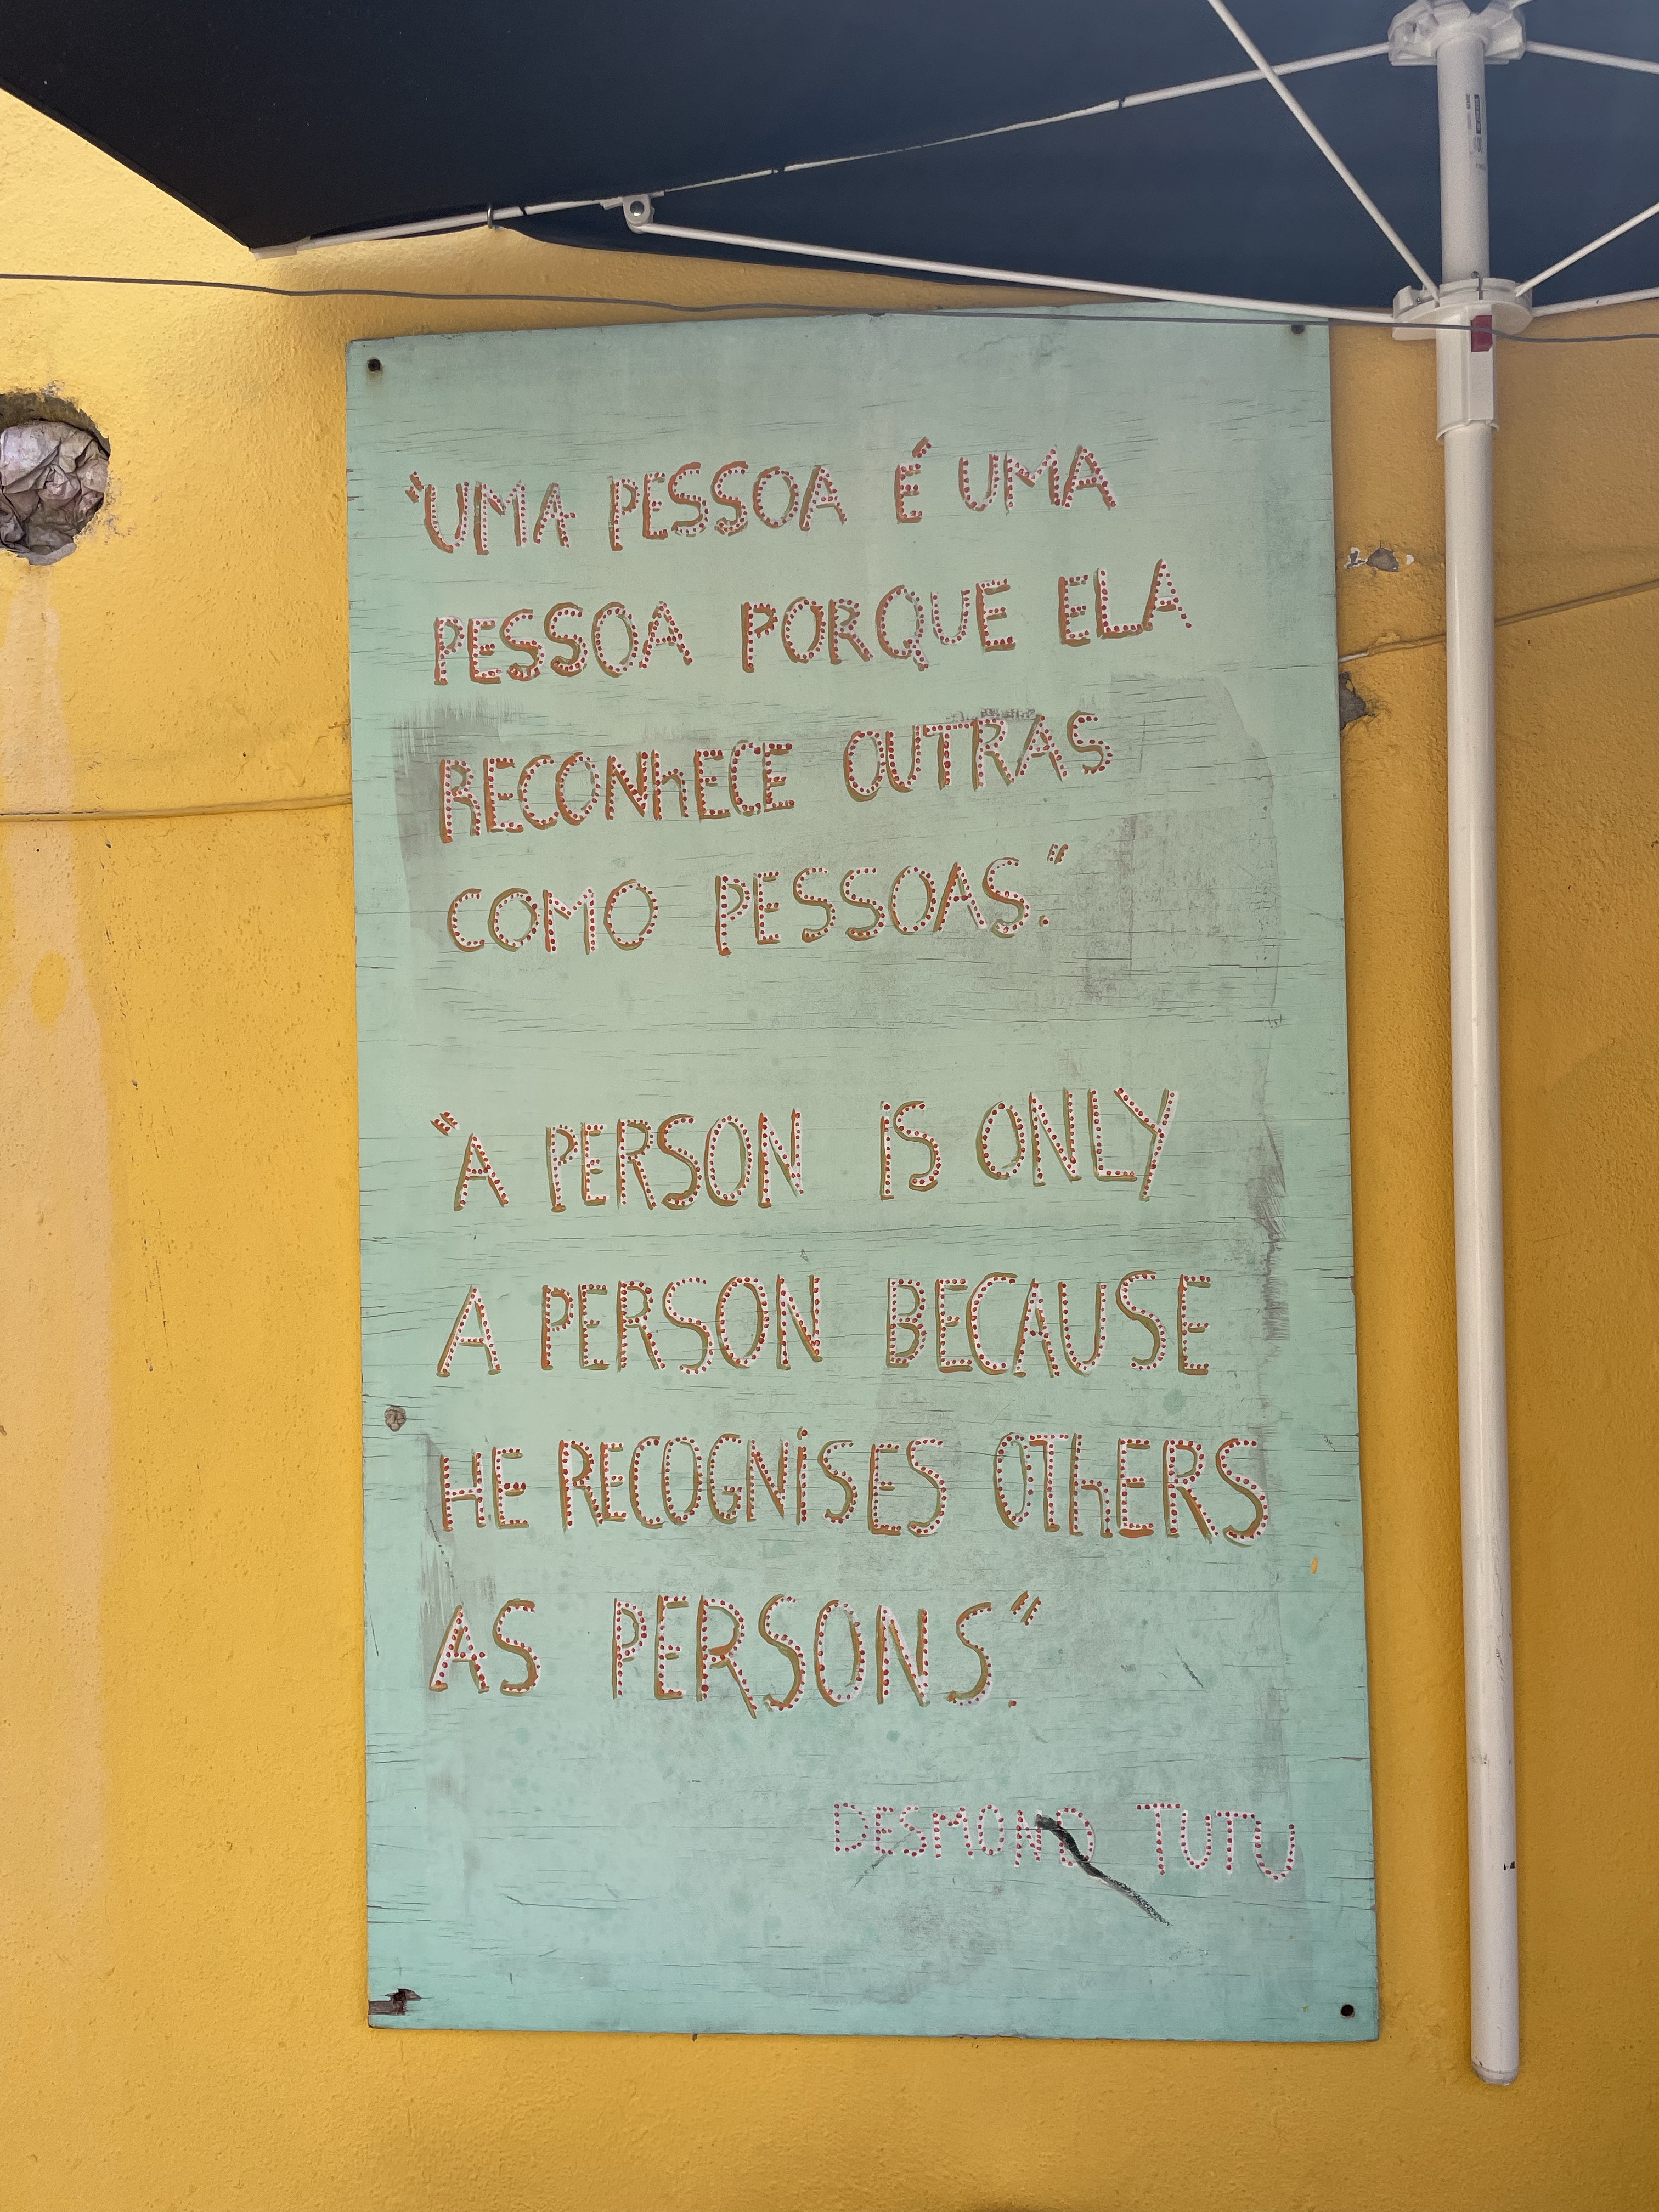 "UMA PESSOA É UMA
PESSOA PORQUE ELA
RECONhECE OUTRAS
COMO PESSOAS."
"A PERSON IS ONLY
A PERSON BECAUSE
HE RECOGNiSES OThERS
AS PERSONS".
DESMOND TUTU